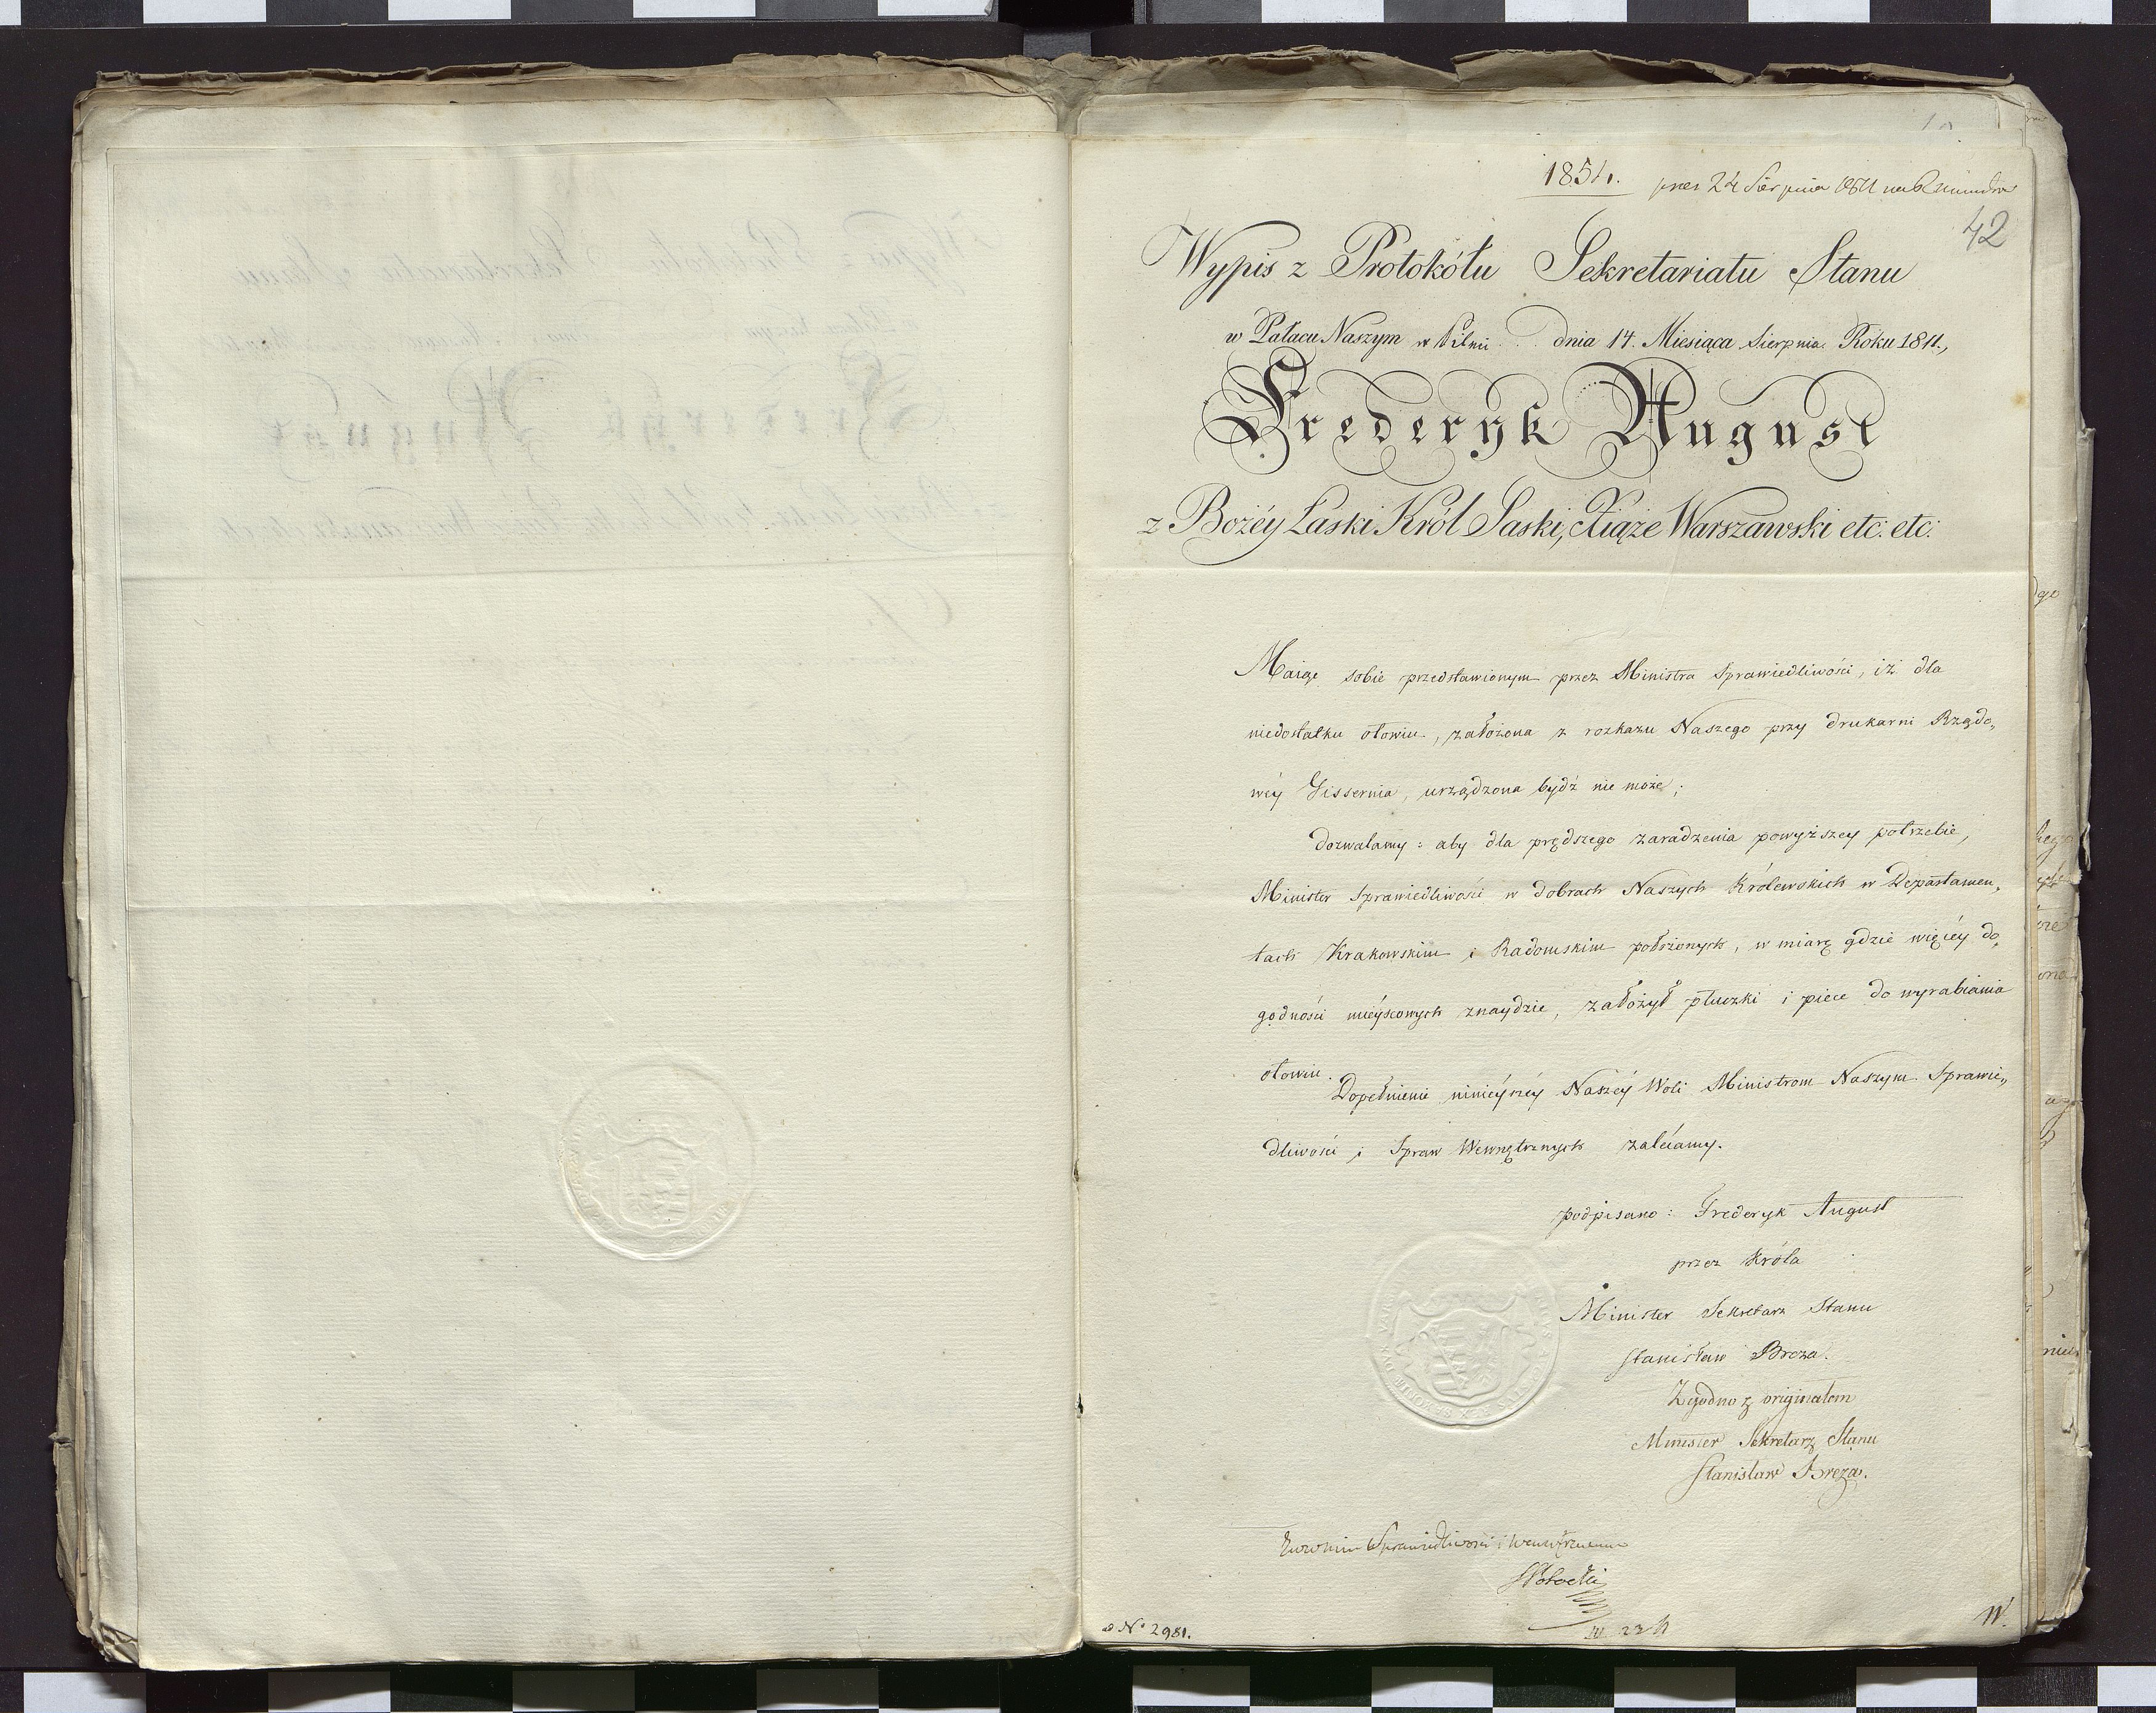 1854. pres 24 Sierpnia 1811
42
Wypis z Protokółu Sekretariatu Stanu
w Pałacu Naszym w Pilnii dnia 14. Miesiąca Sierpnia Roku 1811.,
Frederyk August
z Bożéy Łaski Król Saski, Xiąże Warszawski etc: etc:
Maiąc sobie przedstawionym przez Ministra Sprawiedliwości, iż dla
niedostatku ołowiu, założona z rozkazu Naszego przy drukarni Rządo„
wéy Gissernia, urządzona bydź nie może;
dozwalamy: aby dla prędszego zaradzenia powyższey potrzebie,
Minister Sprawiedliwości w dobrach Naszych Królewskich w Departamen„
tach Krakowskim i Radomskim położonych, w miarę gdzie więcéy do„
godności mieyscowych znaydzie, założył płuczki i piece do wyrabiania
ołowiu.
Dopełnienie ninieyszéy Naszéy Woli Ministrom Naszym Sprawie„
dliwości i Spraw Wewnętrznych zalecamy.
podpisano: Frederyk August
przez Króla
Minister Sekretarz Stanu
Stanisław Breza.
Zgodno z originałem
Minister Sekretarz Stanu
Stanisław Breza.
Sprawiedliwości i Wewnętrznemu
SPotocki
N° 2981.